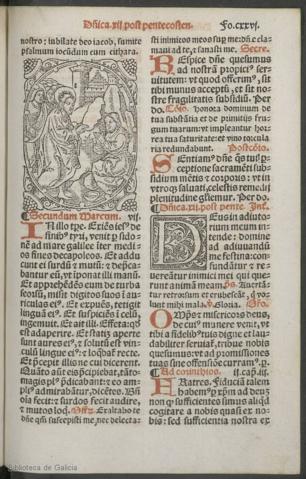 Dñica.xij.post pentecosten. Fo.cxxvj.
nostro; iubilate deo iacob, sumite
psalmum iocūdum cum cithara.
Secundum Marcum. vij.
IN illo tpe. Exiēs iesꝰ de
finibꝰ tyri, venit ꝑ sidonē
ad mare galilee īter medios
fines decapoleos. Et adducunt
ei surdū ⁊ mutū: ⁊ dep̄cabantur
eū, vt īponat illi manū.
Et apprehēdēs eum de turba
seorsū, misit digitos suos ī auriculas
eiꝰ. Et expuēs, tetigit
linguā eiꝰ. Et suspiciēs ī celū,
ingemuit. Et ait illi. Effeta: qḋ
est adaperire. Et statī aperte
sunt aures eiꝰ: ⁊ solutū est vinculū
lingue eiꝰ: ⁊ loq̄bat̄ recte.
Et p̄cepit illis ne cui dicerent.
Quāto aūt eis p̄cipiebat, tāto
magis plꝰ p̄dicabant: ⁊ eo amplꝰ
admirabāt̄, dicētes. Bñ
oīa fecit: surdos fecit audire,
⁊ mutos loq̄. Offꝫ. Exaltabo te
dñe qm̄ suscepisti me, nec delectasti
inimicos meos suꝑ me: dñe clamaui
ad te, ⁊ sanasti me. Secre.
REspice dñe quesumus
ad nostrā propiciꝰ seruitutem:
vt quod offerimꝰ, sit
tibi munus acceptū, et sit nostre
fragilitatis subsidiū. Per
do. Cōio. honora dominum de
tua substātia et de primitijs frugum
tuarum: vt impleantur horrea
tua saturitate: et vino torcularia
redundabunt. Postcōio.
SEntiamꝰ dñe q̄s tui ꝑceptione
sacramēti subsidium
mētis ⁊ corporis: vt in
vtroq̄ saluati, celestis remedij
plenitudine gl̄iemur. Per do.
Dñica.xij.post pente. Int.
DEus in adiutorium
meum intende:
domine
ad adiuuandū
me festina: confundātur
⁊ reuereātur
inimici mei qui querunt
animā meam. ps. Auertātur
retrorsum et erubescāt, q̄ volunt
mihi mala. Gloria. Oro.
OMp̄s ⁊ misericors deus,
de cuiꝰ munere venit, vt
tibi a fidelibꝰ tuis digne et laudabiliter
seruiat̄, tribue nobis
quesumus: vt ad promissiones
tuas sine offensiōe curramꝰ. ꝑ.
Ad corinthios. ij.cap.iij.
FRatres. Fiduciā talem
habemꝰ ꝑ xp̄m ad deū:
non q̄ sufficientes simus aliqd
cogitare a nobis quasi ex nobis:
sed sufficientia nostra ex
Biblioteca de Galicia